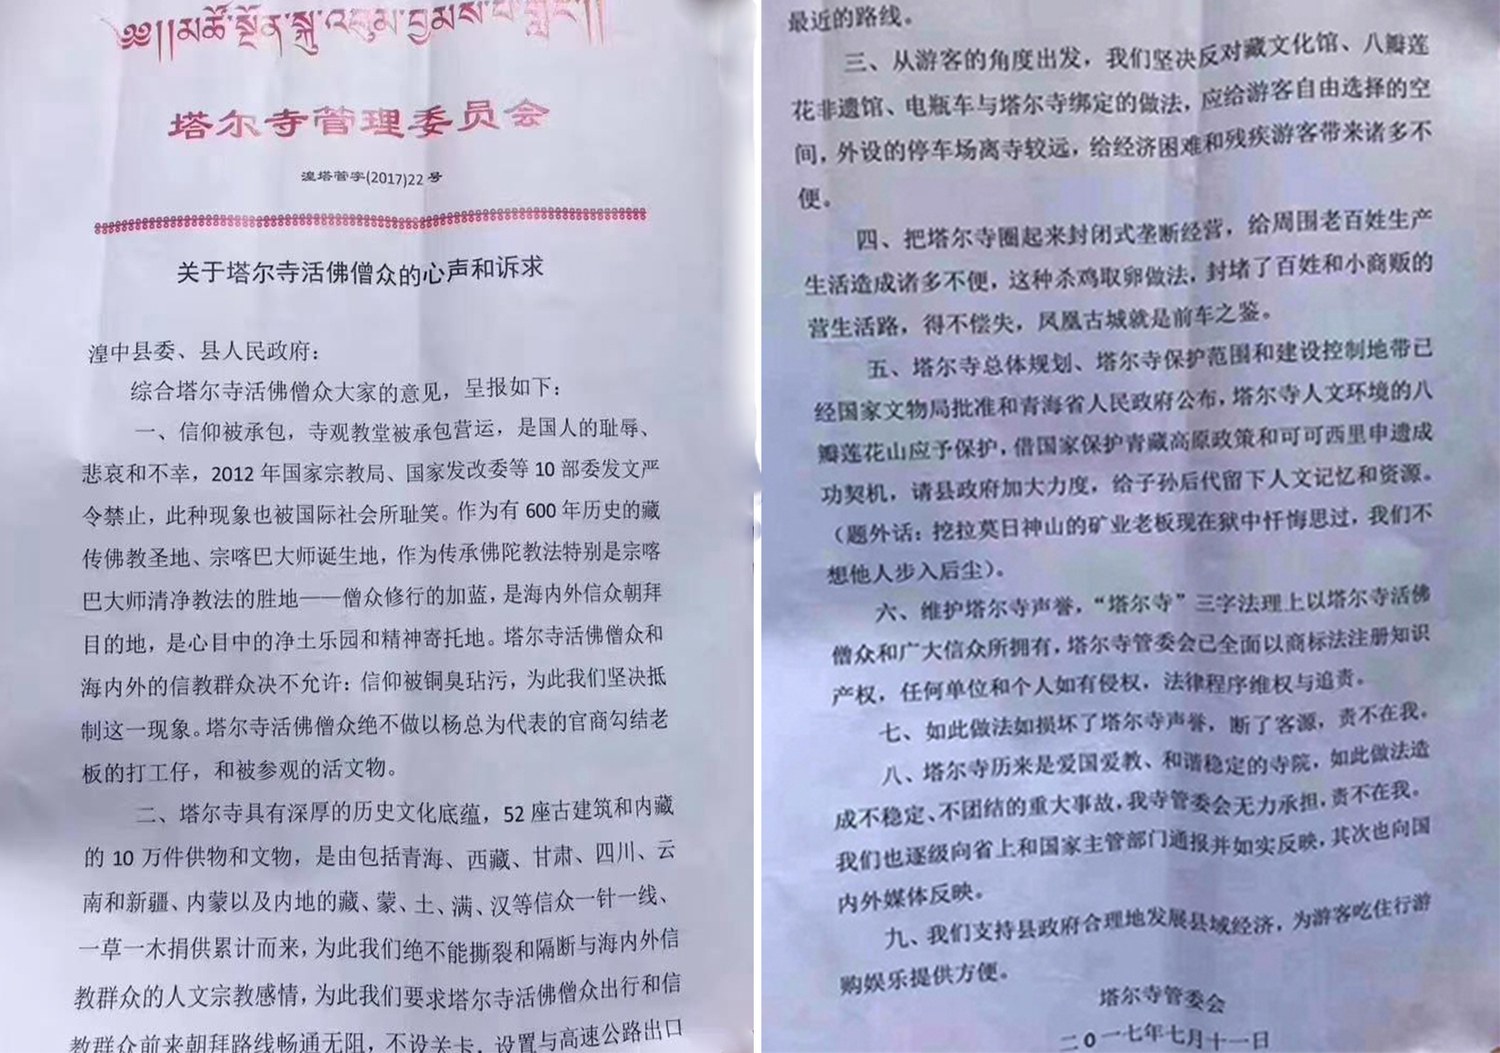 塔尔寺管理委员会
湟塔管字(2017)22 号
关于塔尔寺活佛僧众的心声和诉求
湟中县委、县人民政府：
综合塔尔寺活佛僧众大家的意见，呈报如下：
一、信仰被承包，寺观教堂被承包营运，是国人的耻辱、
悲哀和不幸，2012 年国家宗教局、国家发改委等 10 部委发文严
令禁止，此种现象也被国际社会所耻笑。作为有 600 年历史的藏
传佛教圣地、宗喀巴大师诞生地，作为传承佛陀教法特别是宗喀
巴大师清净教法的胜地——僧众修行的加蓝，是海内外信众朝拜
目的地，是心目中的净土乐园和精神寄托地。塔尔寺活佛僧众和
海内外的信教群众决不允许：信仰被铜臭玷污，为此我们坚决抵
制这一现象。塔尔寺活佛僧众绝不做以杨总为代表的官商勾结老
板的打工仔，和被参观的活文物。
二、塔尔寺具有深厚的历史文化底蕴，52 座古建筑和内藏
的 10 万件供物和文物，是由包括青海、西藏、甘肃、四川、云
南和新疆、内蒙以及内地的藏、蒙、土、满、汉等信众一针一线、
一草一木捐供累计而来，为此我们绝不能撕裂和隔断与海内外信
教群众的人文宗教感情，为此我们要求塔尔寺活佛僧众出行和信
教群众前来朝拜路线畅通无阻，不设关卡，设置与高速公路出口
最近的路线。
三、从游客的角度出发，我们坚决反对藏文化馆、八瓣莲
花非遗馆、电瓶车与塔尔寺绑定的做法，应给游客自由选择的空
间，外设的停车场离寺较远，给经济困难和残疾游客带来诸多不
便。
四、把塔尔寺圈起来封闭式垄断经营，给周围老百姓生产
生活造成诸多不便，这种杀鸡取卵做法，封堵了百姓和小商贩的
营生活路，得不偿失，凤凰古城就是前车之鉴。
五、塔尔寺总体规划、塔尔寺保护范围和建设控制地带已
经国家文物局批准和青海省人民政府公布，塔尔寺人文环境的八
瓣莲花山应予保护，借国家保护青藏高原政策和可可西里申遗成
功契机，请县政府加大力度，给子孙后代留下人文记忆和资源。
（题外话：挖拉莫日神山的矿业老板现在狱中忏悔思过，我们不
想他人步入后尘）。
六、维护塔尔寺声誉，“塔尔寺”三字法理上以塔尔寺活佛
僧众和广大信众所拥有，塔尔寺管委会已全面以商标法注册知识
产权，任何单位和个人如有侵权，法律程序维权与追责。
七、如此做法如损坏了塔尔寺声誉，断了客源，责不在我。
八、塔尔寺历来是爱国爱教、和谐稳定的寺院，如此做法造
成不稳定、不团结的重大事故，我寺管委会无力承担，责不在我。
我们也逐级向省上和国家主管部门通报并如实反映，其次也向国
内外媒体反映。
九、我们支持县政府合理地发展县域经济，为游客吃住行游
购娱乐提供方便。
塔尔寺管委会
二0一七年七月十一日